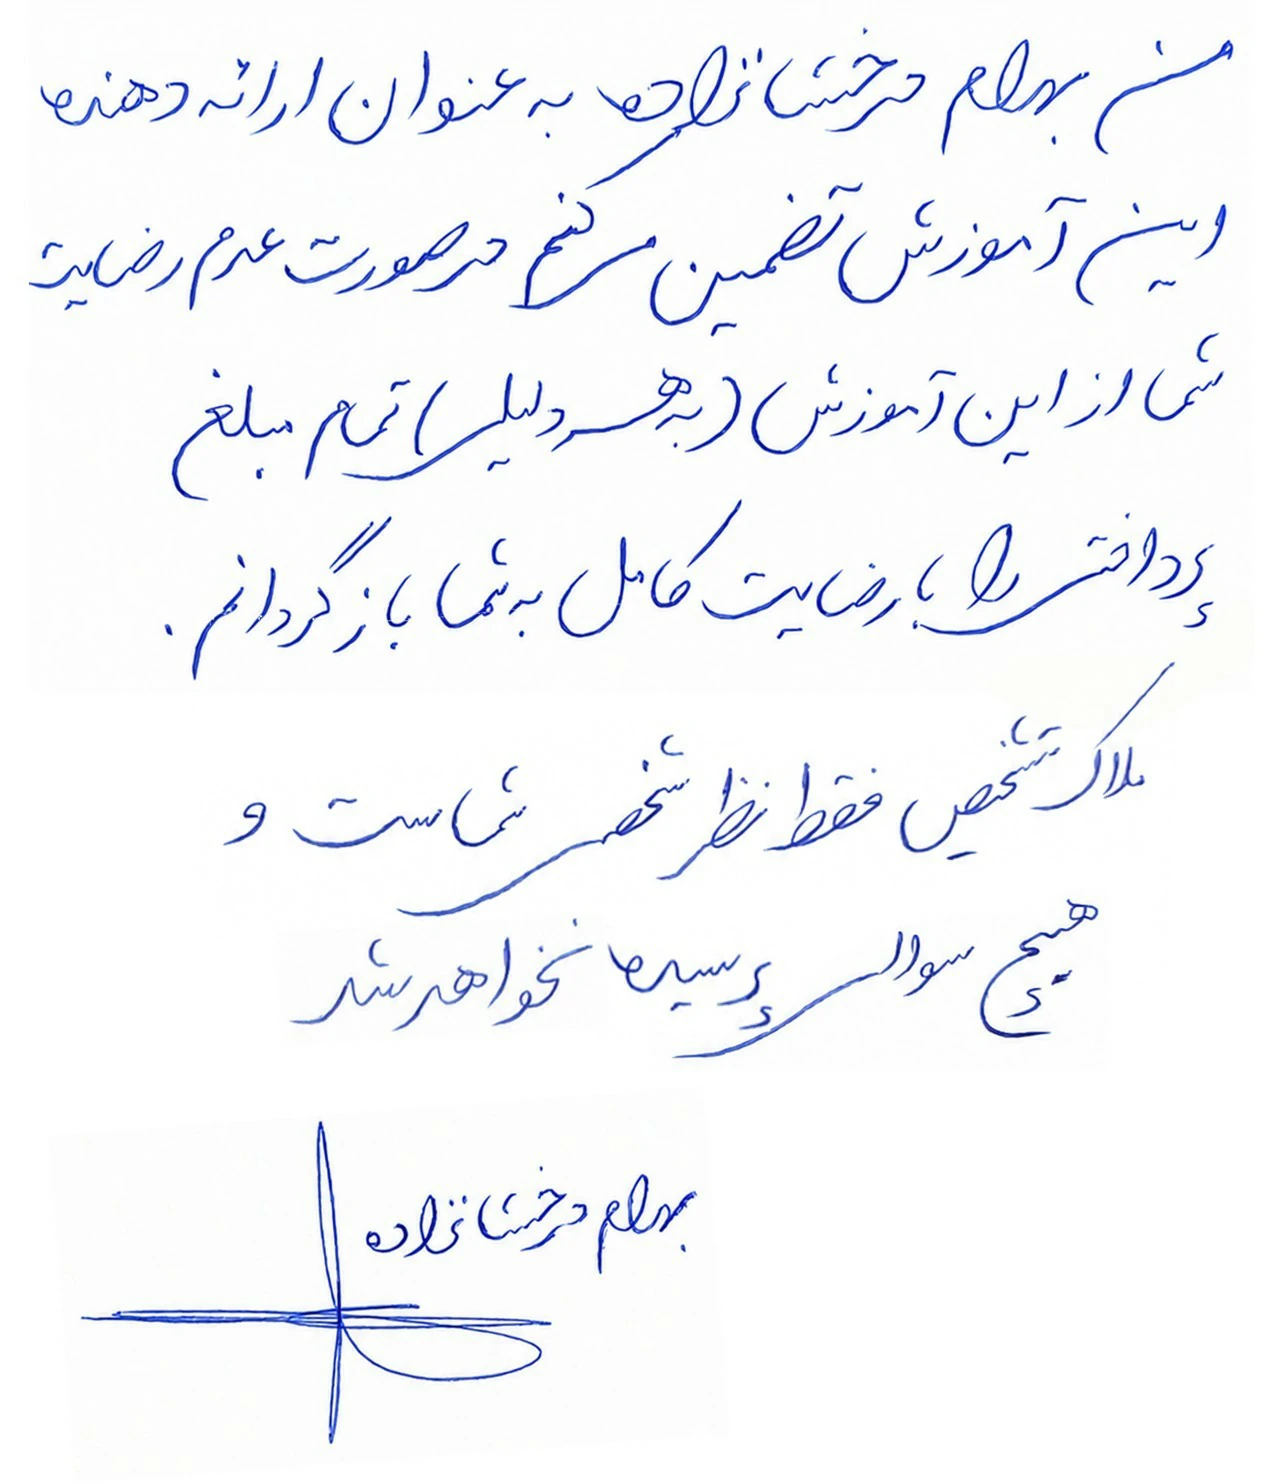 من بهرام درخشانژاده به عنوان ارائه دهنده
این آموزش تضمین می کنم در صورت عدم رضایت
شما از این آموزش (به هر دلیلی) تمام مبلغ
پرداختی را با رضایت کامل به شما بازگردانم.
ملاک تشخیص فقط نظر شخصی شماست و
هیچ سوالی پرسیده نخواهد شد
بهرام درخشانژاده